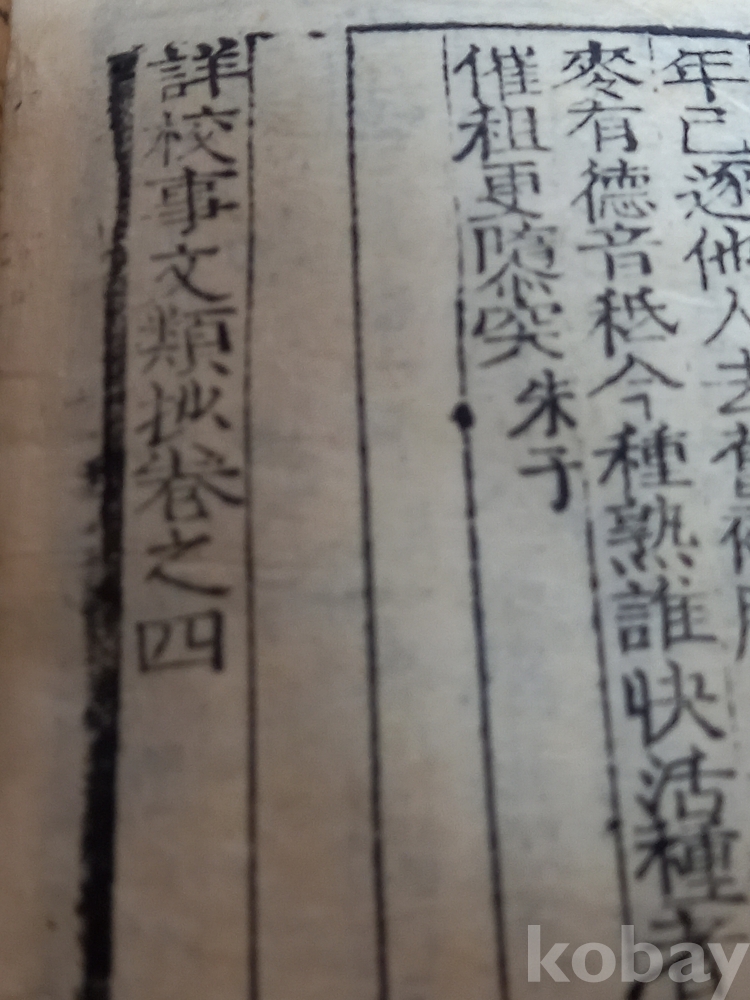 年已逐他人去舊
麥有德音秪今種熟誰快活種
催租更隳突朱子
詳校事文類抄卷之四
kobay